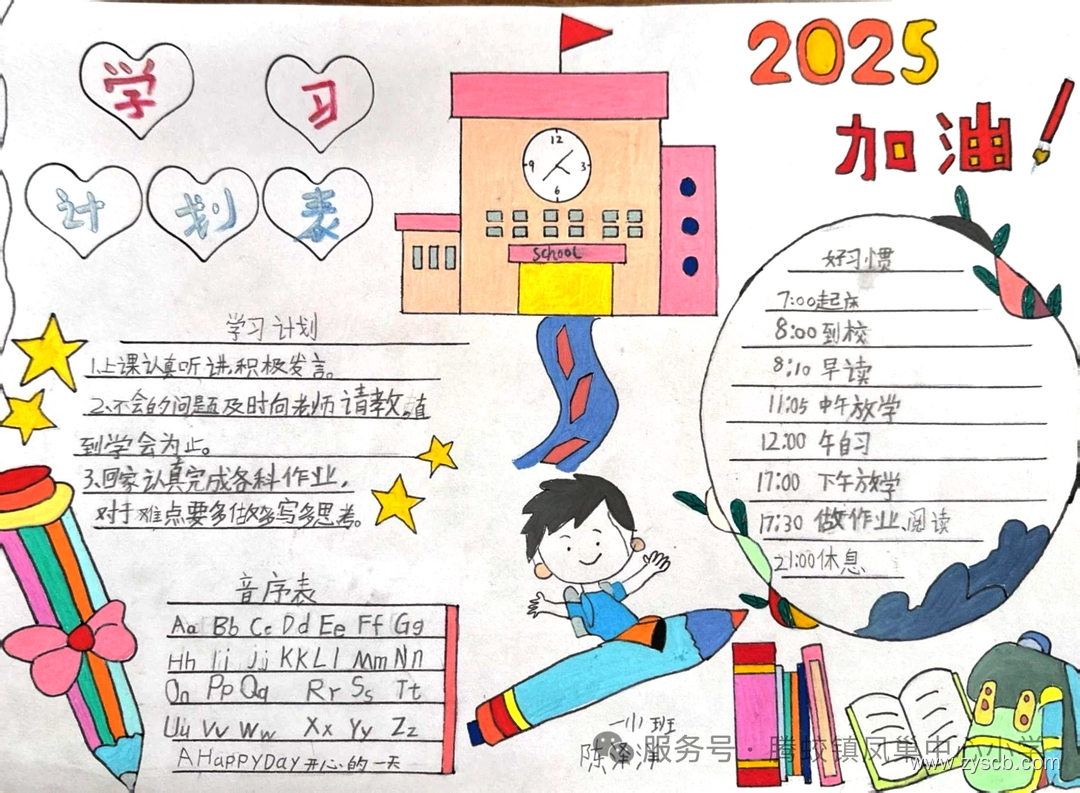 学习
计划表
2025
加油
12
9 3
6
school
学习计划
1.上课认真听讲,积极发言。
2.不会的问题及时向老师请教。直
到学会为止。
3.回家认真完成各科作业,
对于难点要多做多写多思考。
好习惯
7:00起床
8:00到校
8:10早读
11:05中午放学
12:00午自习
17:00下午放学
17:30做作业、阅读
21:00休息
音序表
Aa Bb Cc Dd Ee Ff Gg
Hh Ii Jj KK Ll Mm Nn
On Pp Qq Rr Ss Tt
Uu Vv Ww Xx Yy Zz
A HAPPY DAY 开心的一天
一小班
陈泽
服务号·腾蛟镇凤巢中心小学
www.zyscb.com